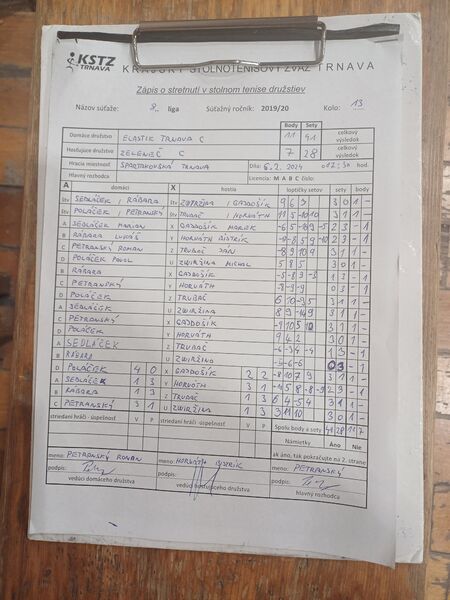 KSTZ
TRNAVA
KRAJSKÝ STOLNOTENISOVÝ ZVÄZ TRNAVA
Zápis o stretnutí v stolnom tenise družstiev
Názov súťaže: 8. liga Súťažný ročník: 2019/20 Kolo: 13
Body Sety
Domáce družstvo ELASTIK TRNAVA C 11 41 celkový výsledok
Hosťujúce družstvo ZELENEČ C 7 28 celkový výsledok
Hracia miestnosť SPARTAKOVSKÁ TRNAVA Dňa: 6.2.2024 o 17:30 hod.
Hlavný rozhodca Licencia: M A B C číslo:
A domáci X hostia loptičky setov sety body
Štv SEDLÁČEK / RÁBARA Štv ZWIRŽINA / GAJDOŠÍK 9 6 3 3 0 1 -
Štv POLÁČEK / PETRANSKÝ Štv TRUBAČ / HORVÁTH 3 1 1 -
A SEDLÁČEK MARIAN X GAJDOŠÍK MAREK 2 3 - 1
B RÁBARA LUKÁŠ Y HORVÁTH BISTRÍK 2 3 - 1
C PETRANSKÝ ROMAN Z TRUBAČ JÁN 8 9 10 9 3 1 1 -
D POLÁČEK PAVOL U ZWIRŽINA MICHAL 5 8 5 3 0 1 -
B RÁBARA X GAJDOŠÍK -5 -8 9 -9 1 3 - 1
C PETRANSKÝ Y HORVÁTH -8 -9 -9 0 3 - 1
D POLÁČEK Z TRUBAČ 6 10 -9 5 3 1 1 -
A SEDLÁČEK U ZWIRŽINA 8 9 -14 9 3 1 1 -
C PETRANSKÝ X GAJDOŠÍK 3 1 1 -
D POLÁČEK Y HORVÁTH 9 4 2 3 0 1 -
A SEDLÁČEK Z TRUBAČ -6 -3 4 -4 1 3 - 1
B RÁBARA U ZWIRŽINA 0 3 - 1
D POLÁČEK 4 0 X GAJDOŠÍK 2 2 -8 10 7 9 3 1 1 -
A SEDLÁČEK 1 3 Y HORVÁTH 3 1 -4 5 8 -8 -9 2 3 - 1
B RÁBARA 1 3 Z TRUBAČ 1 3 6 4 -5 4 3 1 1 -
C PETRANSKÝ 3 1 U ZWIRŽINA 1 3 3 11 10 3 0 1 -
striedaní hráči - úspešnosť V P striedaní hráči - úspešnosť V P Spolu body a sety 41 28 11 7
Námietky Áno Nie
ak áno, tak pokračujte na 2. strane
meno: PETRANSKÝ ROMAN meno: HORVÁTH BISTRÍK meno: PETRANSKÝ
podpis: podpis: podpis:
vedúci domáceho družstva vedúci hosťujúceho družstva hlavný rozhodca